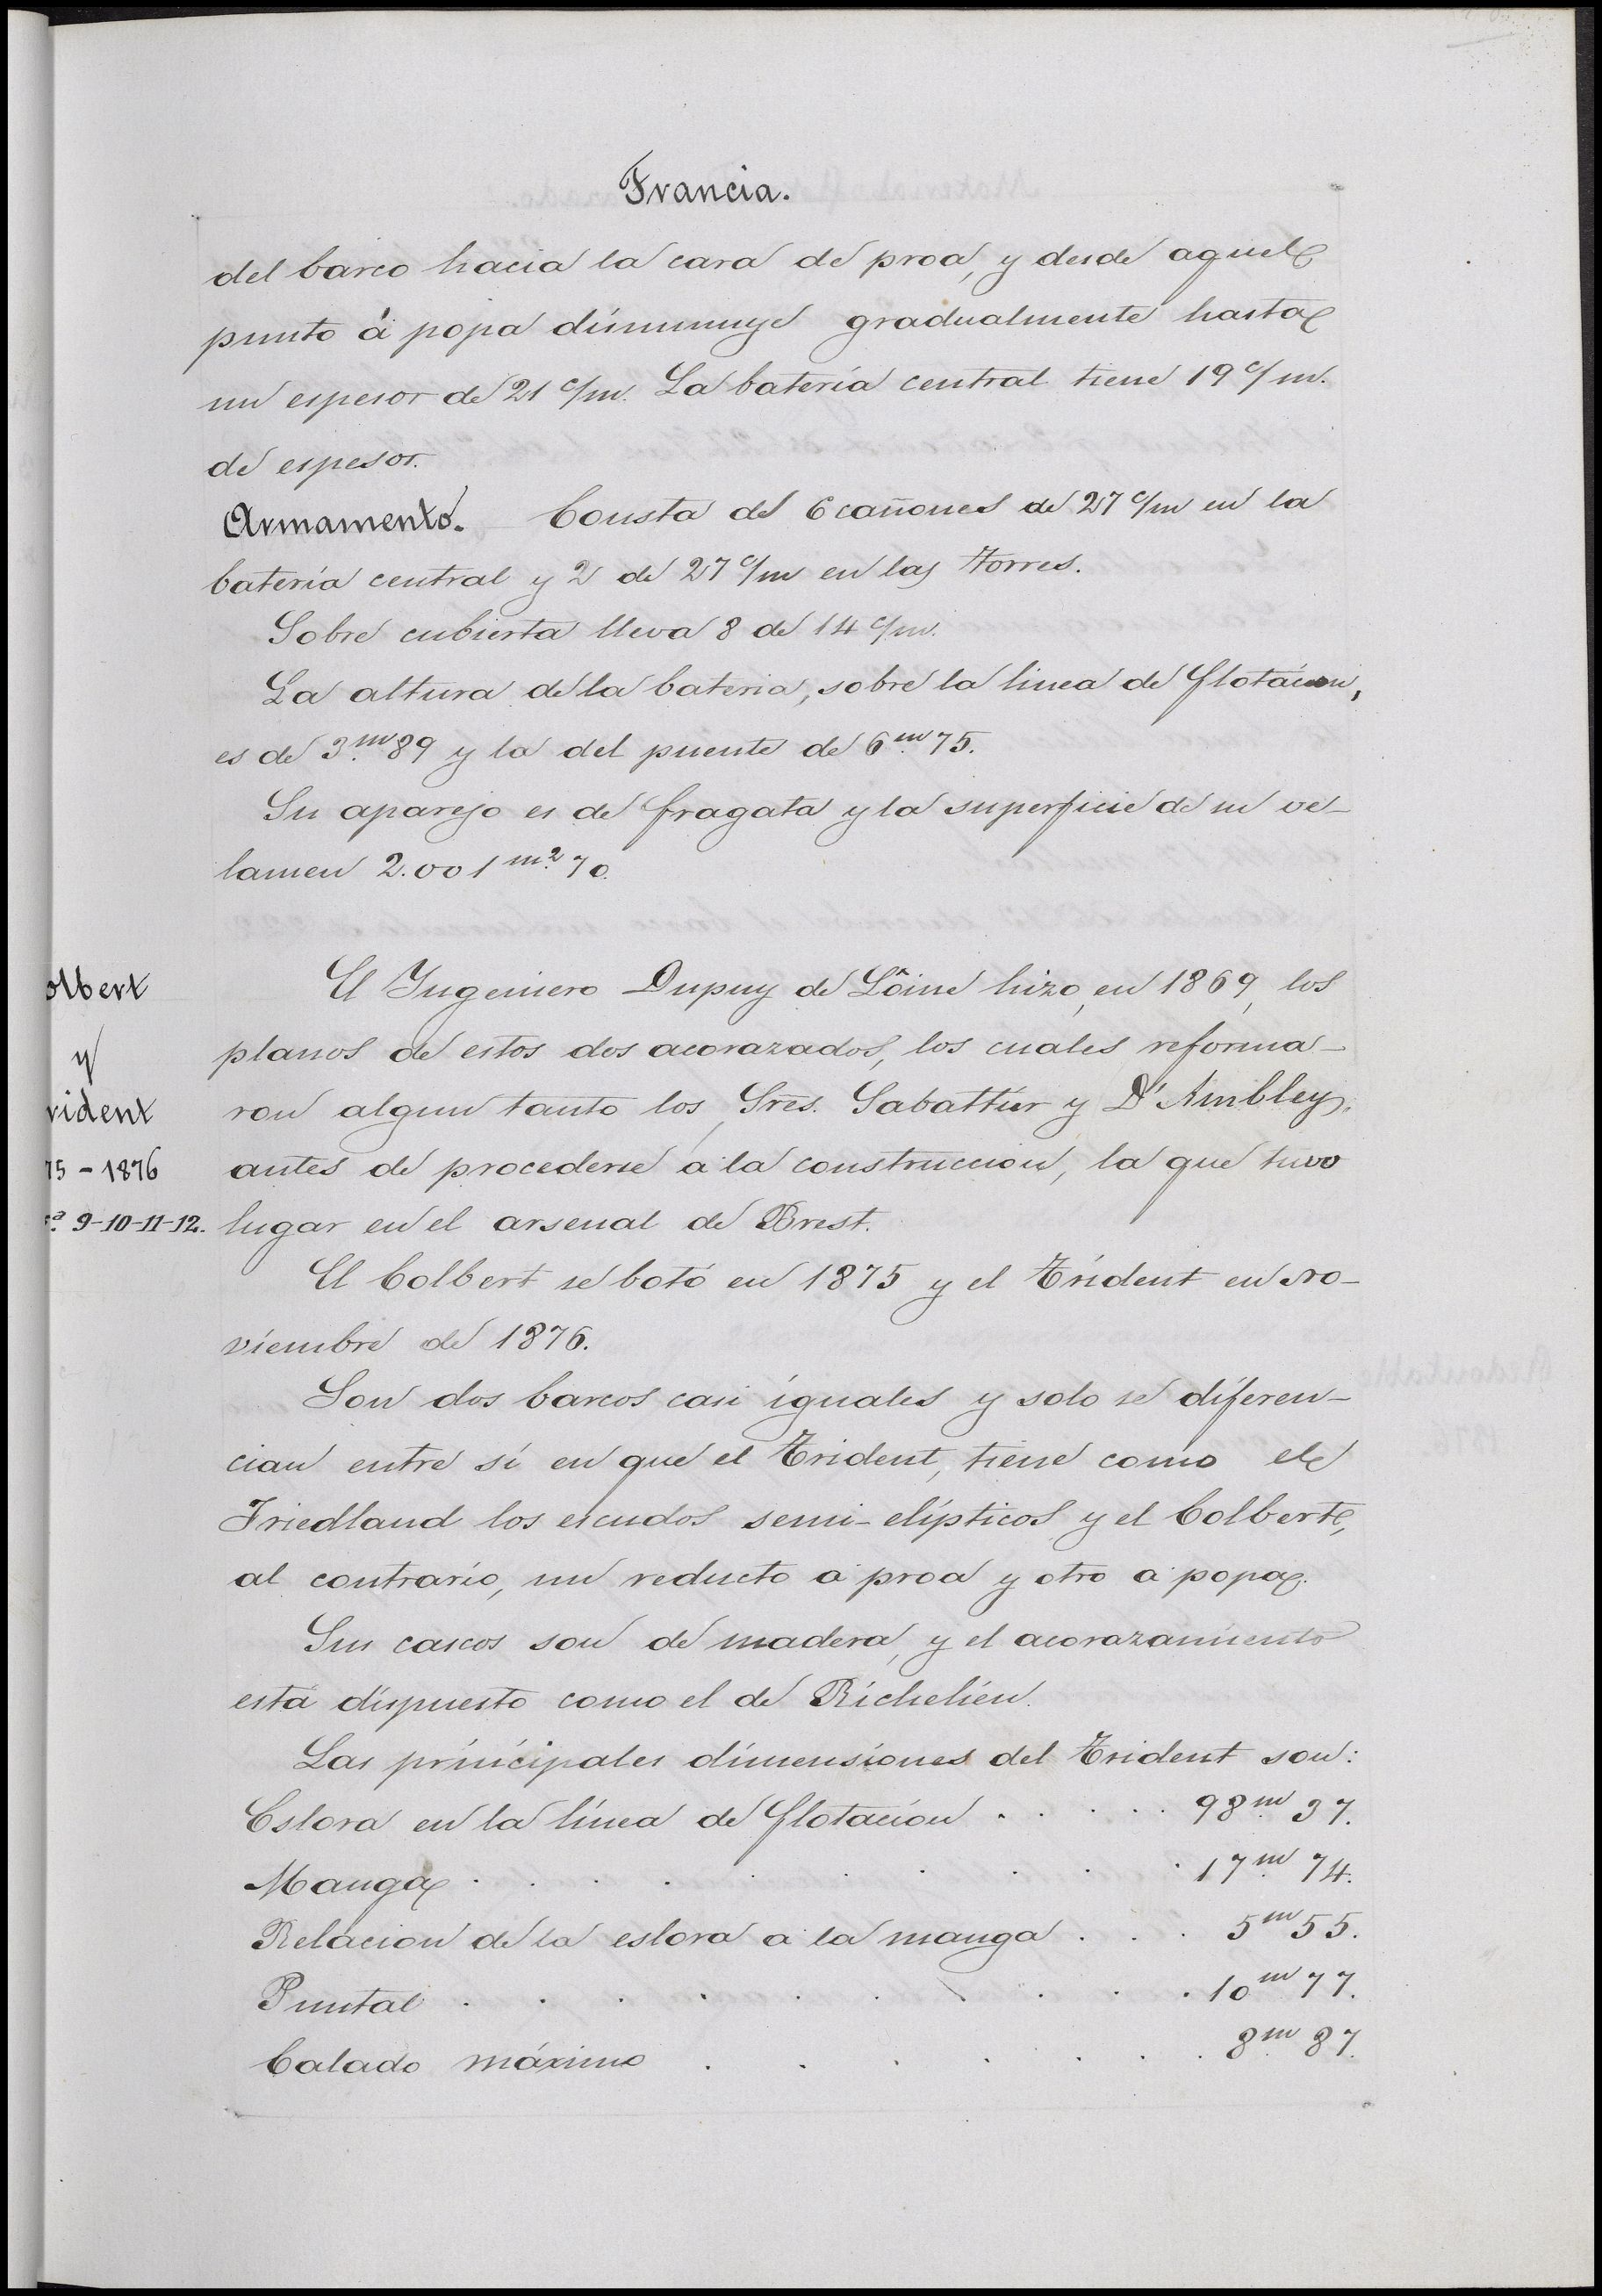 Francia.
del barco hacia la cara de proa, y desde aquel
punto á popa disminuye gradualmente hasta
un espesor de 21 c/m. La batería central tiene 19 c/m.
de espesor.
Armamento. Consta de 6 cañones de 27 c/m en la
batería central y 2 de 27 c/m en las torres.
Sobre cubierta lleva 8 de 14 c/m.
La altura de la bateria, sobre la linea de flotácion,
es de 3.m89 y la del puente de 6.m75.
Su aparejo es de fragata y la superficie de su ve-
lamen 2.001 m.2 70.
olbert
y
rident
75 - 1876
s.a 9-10-11-12.
El Ingeniero Dupuy de Lôine hizo, en 1869, los
planos de estos dos acorazados, los cuales reforma-
ron algun tanto los, Sres. Sabattier y D'Ambley,
antes de procederse á la construccion, la que tuvo
lugar en el arsenal de Brest.
El Colbert se botó en 1875 y el Trident en No-
viembre de 1876.
Son dos barcos casi iguales y solo se diferen-
cian entre sí en que el Trident, tiene como el
Friedland los escudos semi-elípticos y el Colbert,
al contrario, un reducto á proa y otro á popa.
Sus cascos son de madera, y el acorazamiento
está dispuesto como el de Richelieu.
Las principales dimensiones del Trident son:
Eslora en la línea de flotación . . . . . 98.m 37.
Manga . . . . . . . . . 17.m 74.
Relacion de la eslora á la manga . . . 5m 55.
Puntal . . . . . . . . . . 10m 77.
Calado máximo . . . . . . . 8.m 87.